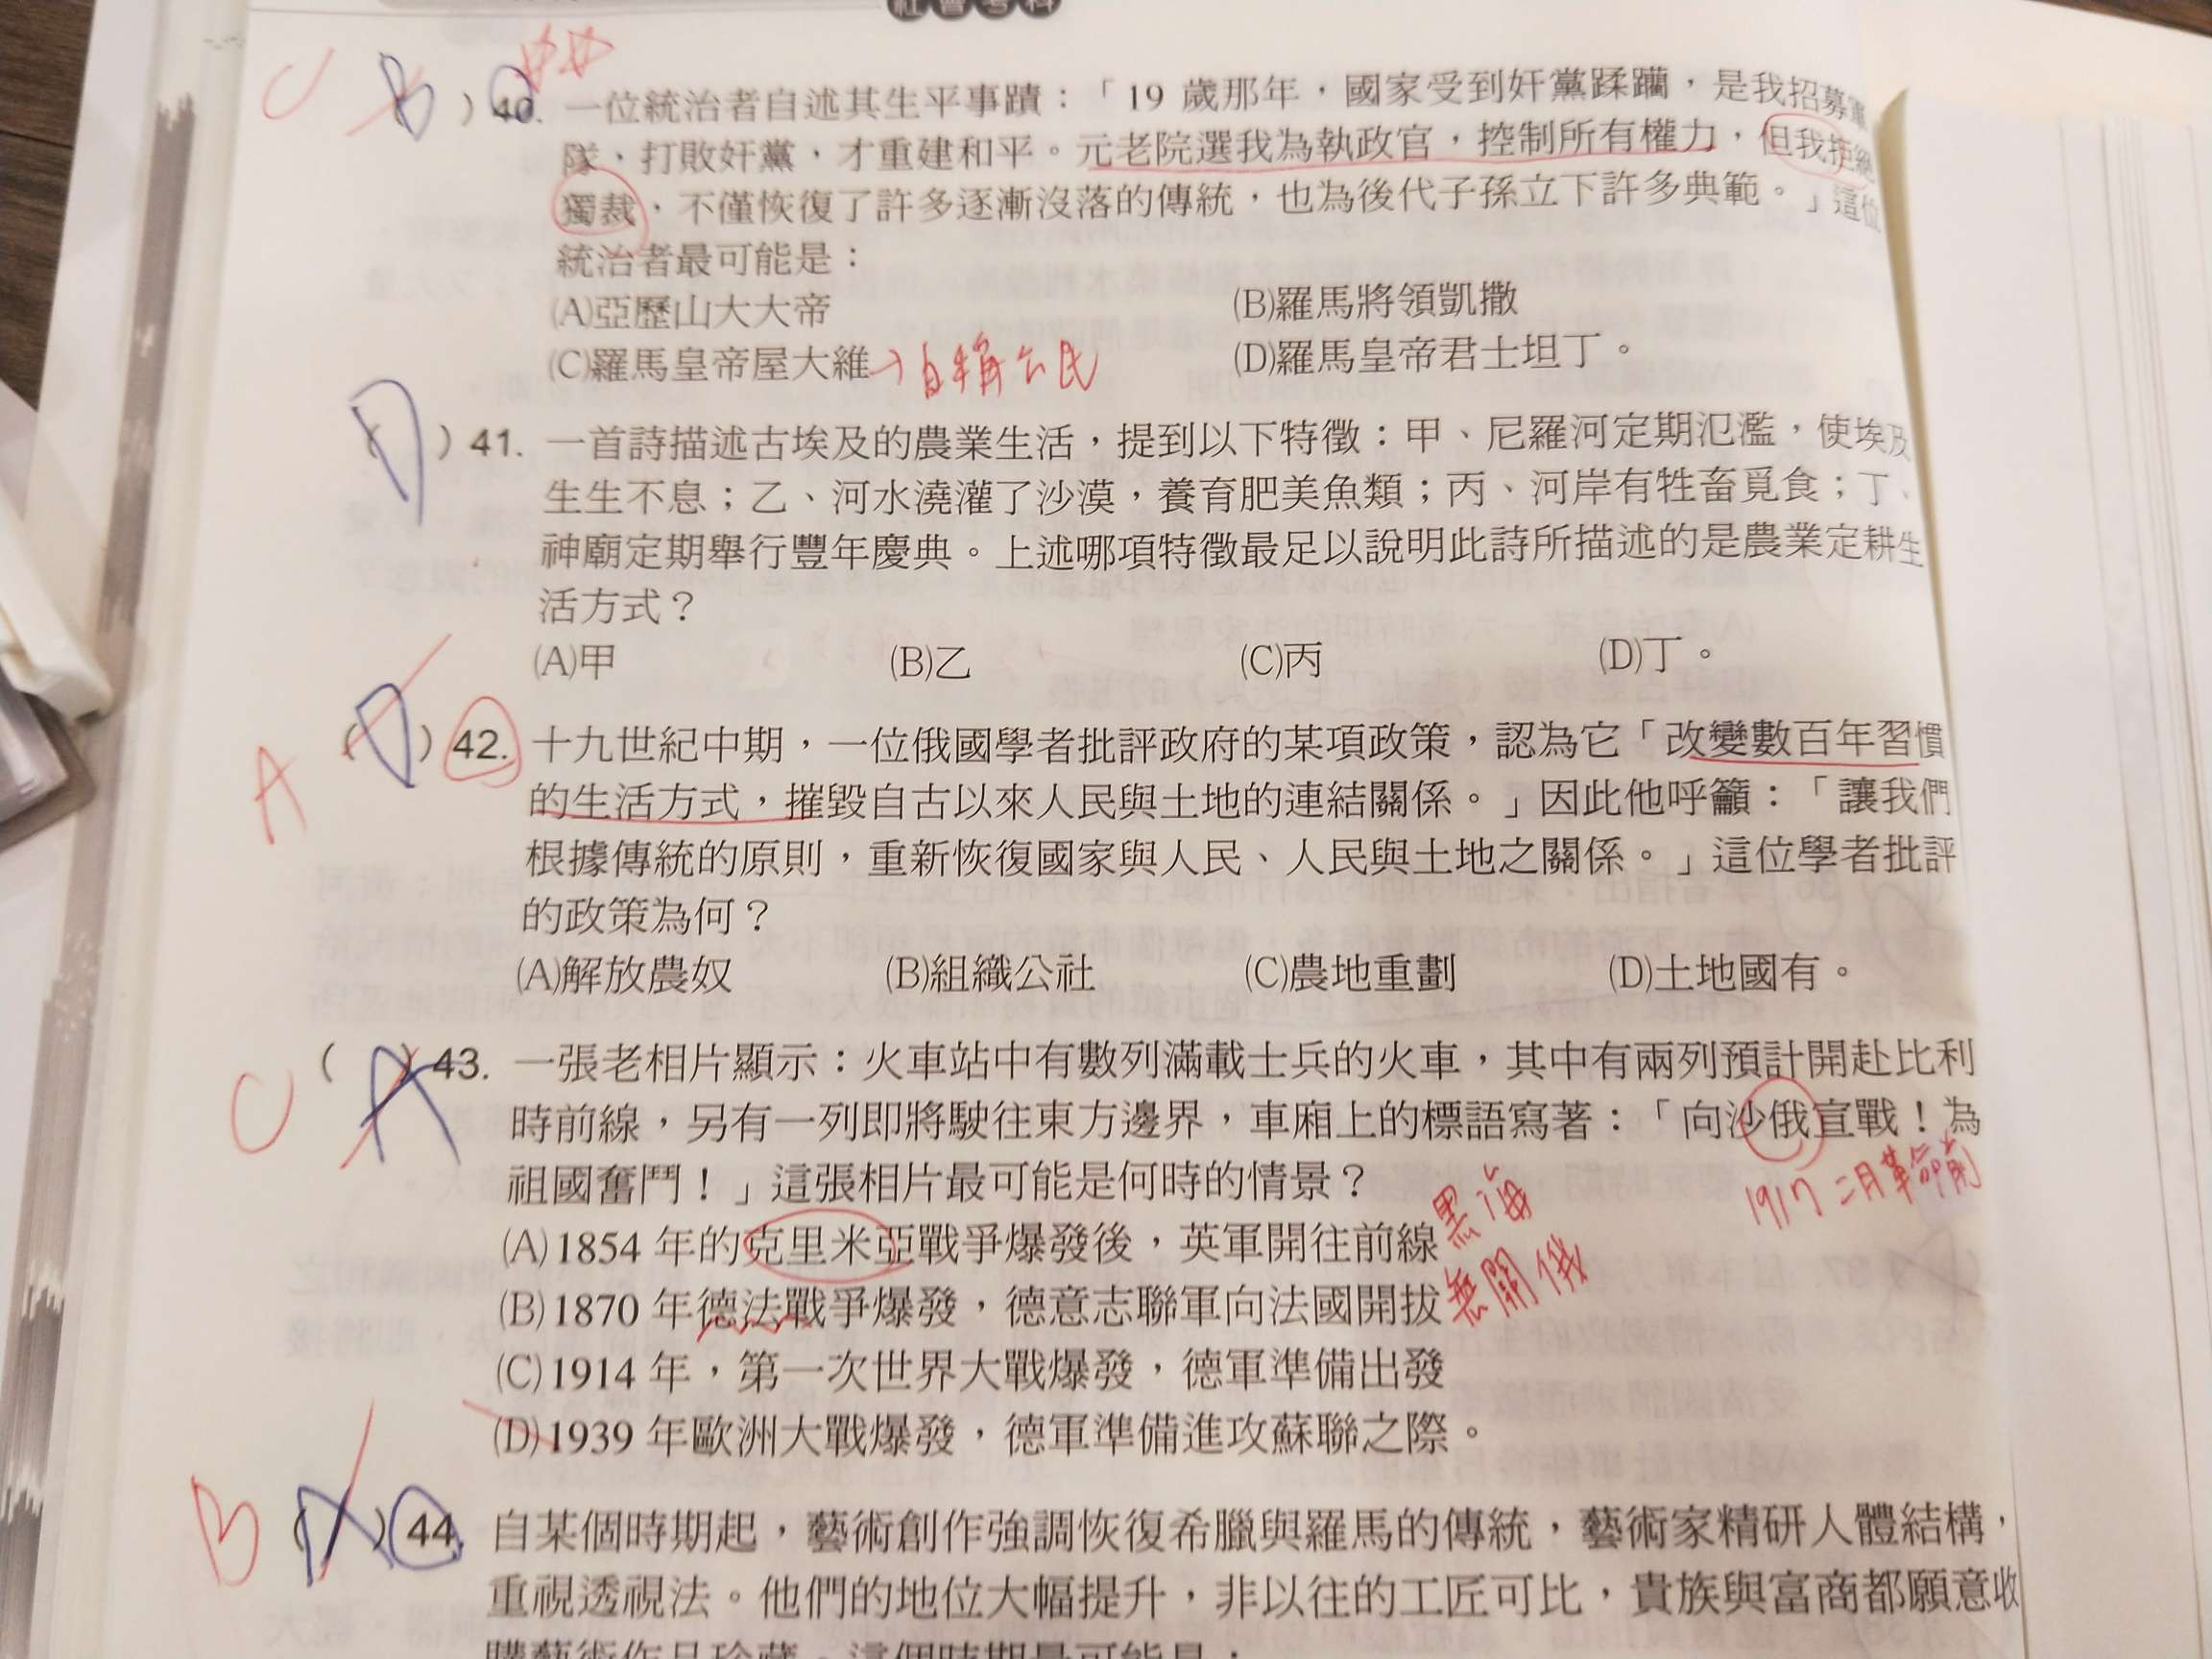 社會考科
C B )40. 一位統治者自述其生平事蹟：「19 歲那年，國家受到奸黨蹂躪，是我招募軍
隊，打敗奸黨，才重建和平。元老院選我為執政官，控制所有權力，但我拒絕
獨裁，不僅恢復了許多逐漸沒落的傳統，也為後代子孫立下許多典範。」這位
統治者最可能是：
(A)亞歷山大大帝 (B)羅馬將領凱撒
(C)羅馬皇帝屋大維→自稱公民 (D)羅馬皇帝君士坦丁。
(D)41. 一首詩描述古埃及的農業生活，提到以下特徵：甲、尼羅河定期氾濫，使埃及
生生不息；乙、河水澆灌了沙漠，養育肥美魚類；丙、河岸有牲畜覓食；丁、
神廟定期舉行豐年慶典。上述哪項特徵最足以說明此詩所描述的是農業定耕生
活方式？
(A)甲 (B)乙 (C)丙 (D)丁。
A (D)42. 十九世紀中期，一位俄國學者批評政府的某項政策，認為它「改變數百年習慣
的生活方式，摧毀自古以來人民與土地的連結關係。」因此他呼籲：「讓我們
根據傳統的原則，重新恢復國家與人民、人民與土地之關係。」這位學者批評
的政策為何？
(A)解放農奴 (B)組織公社 (C)農地重劃 (D)土地國有。
C (A)43. 一張老相片顯示：火車站中有數列滿載士兵的火車，其中有兩列預計開赴比利
時前線，另有一列即將駛往東方邊界，車廂上的標語寫著：「向沙俄宣戰！為
祖國奮鬥！」這張相片最可能是何時的情景？
1917 二月革命前
(A)1854 年的克里米亞戰爭爆發後，英軍開往前線 黑海
(B)1870 年德法戰爭爆發，德意志聯軍向法國開拔 無關俄
(C)1914 年，第一次世界大戰爆發，德軍準備出發
(D)1939 年歐洲大戰爆發，德軍準備進攻蘇聯之際。
B ( )44. 自某個時期起，藝術創作強調恢復希臘與羅馬的傳統，藝術家精研人體結構，
重視透視法。他們的地位大幅提升，非以往的工匠可比，貴族與富商都願意收
購藝術作品珍藏。這個時期最可能是：